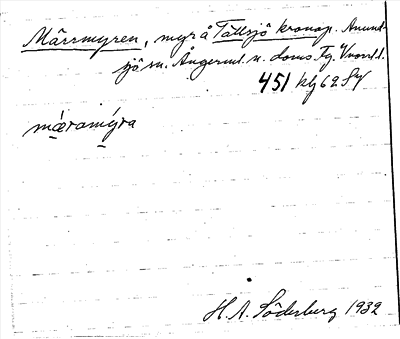 Märrmyren, myr å Tallsjö kronop. Anund-
sjö sn. Ångerml. n. doms. Fg. Vnorrl. l.
451 klj 62 SV
mæramýra
H. A. Söderberg 1932